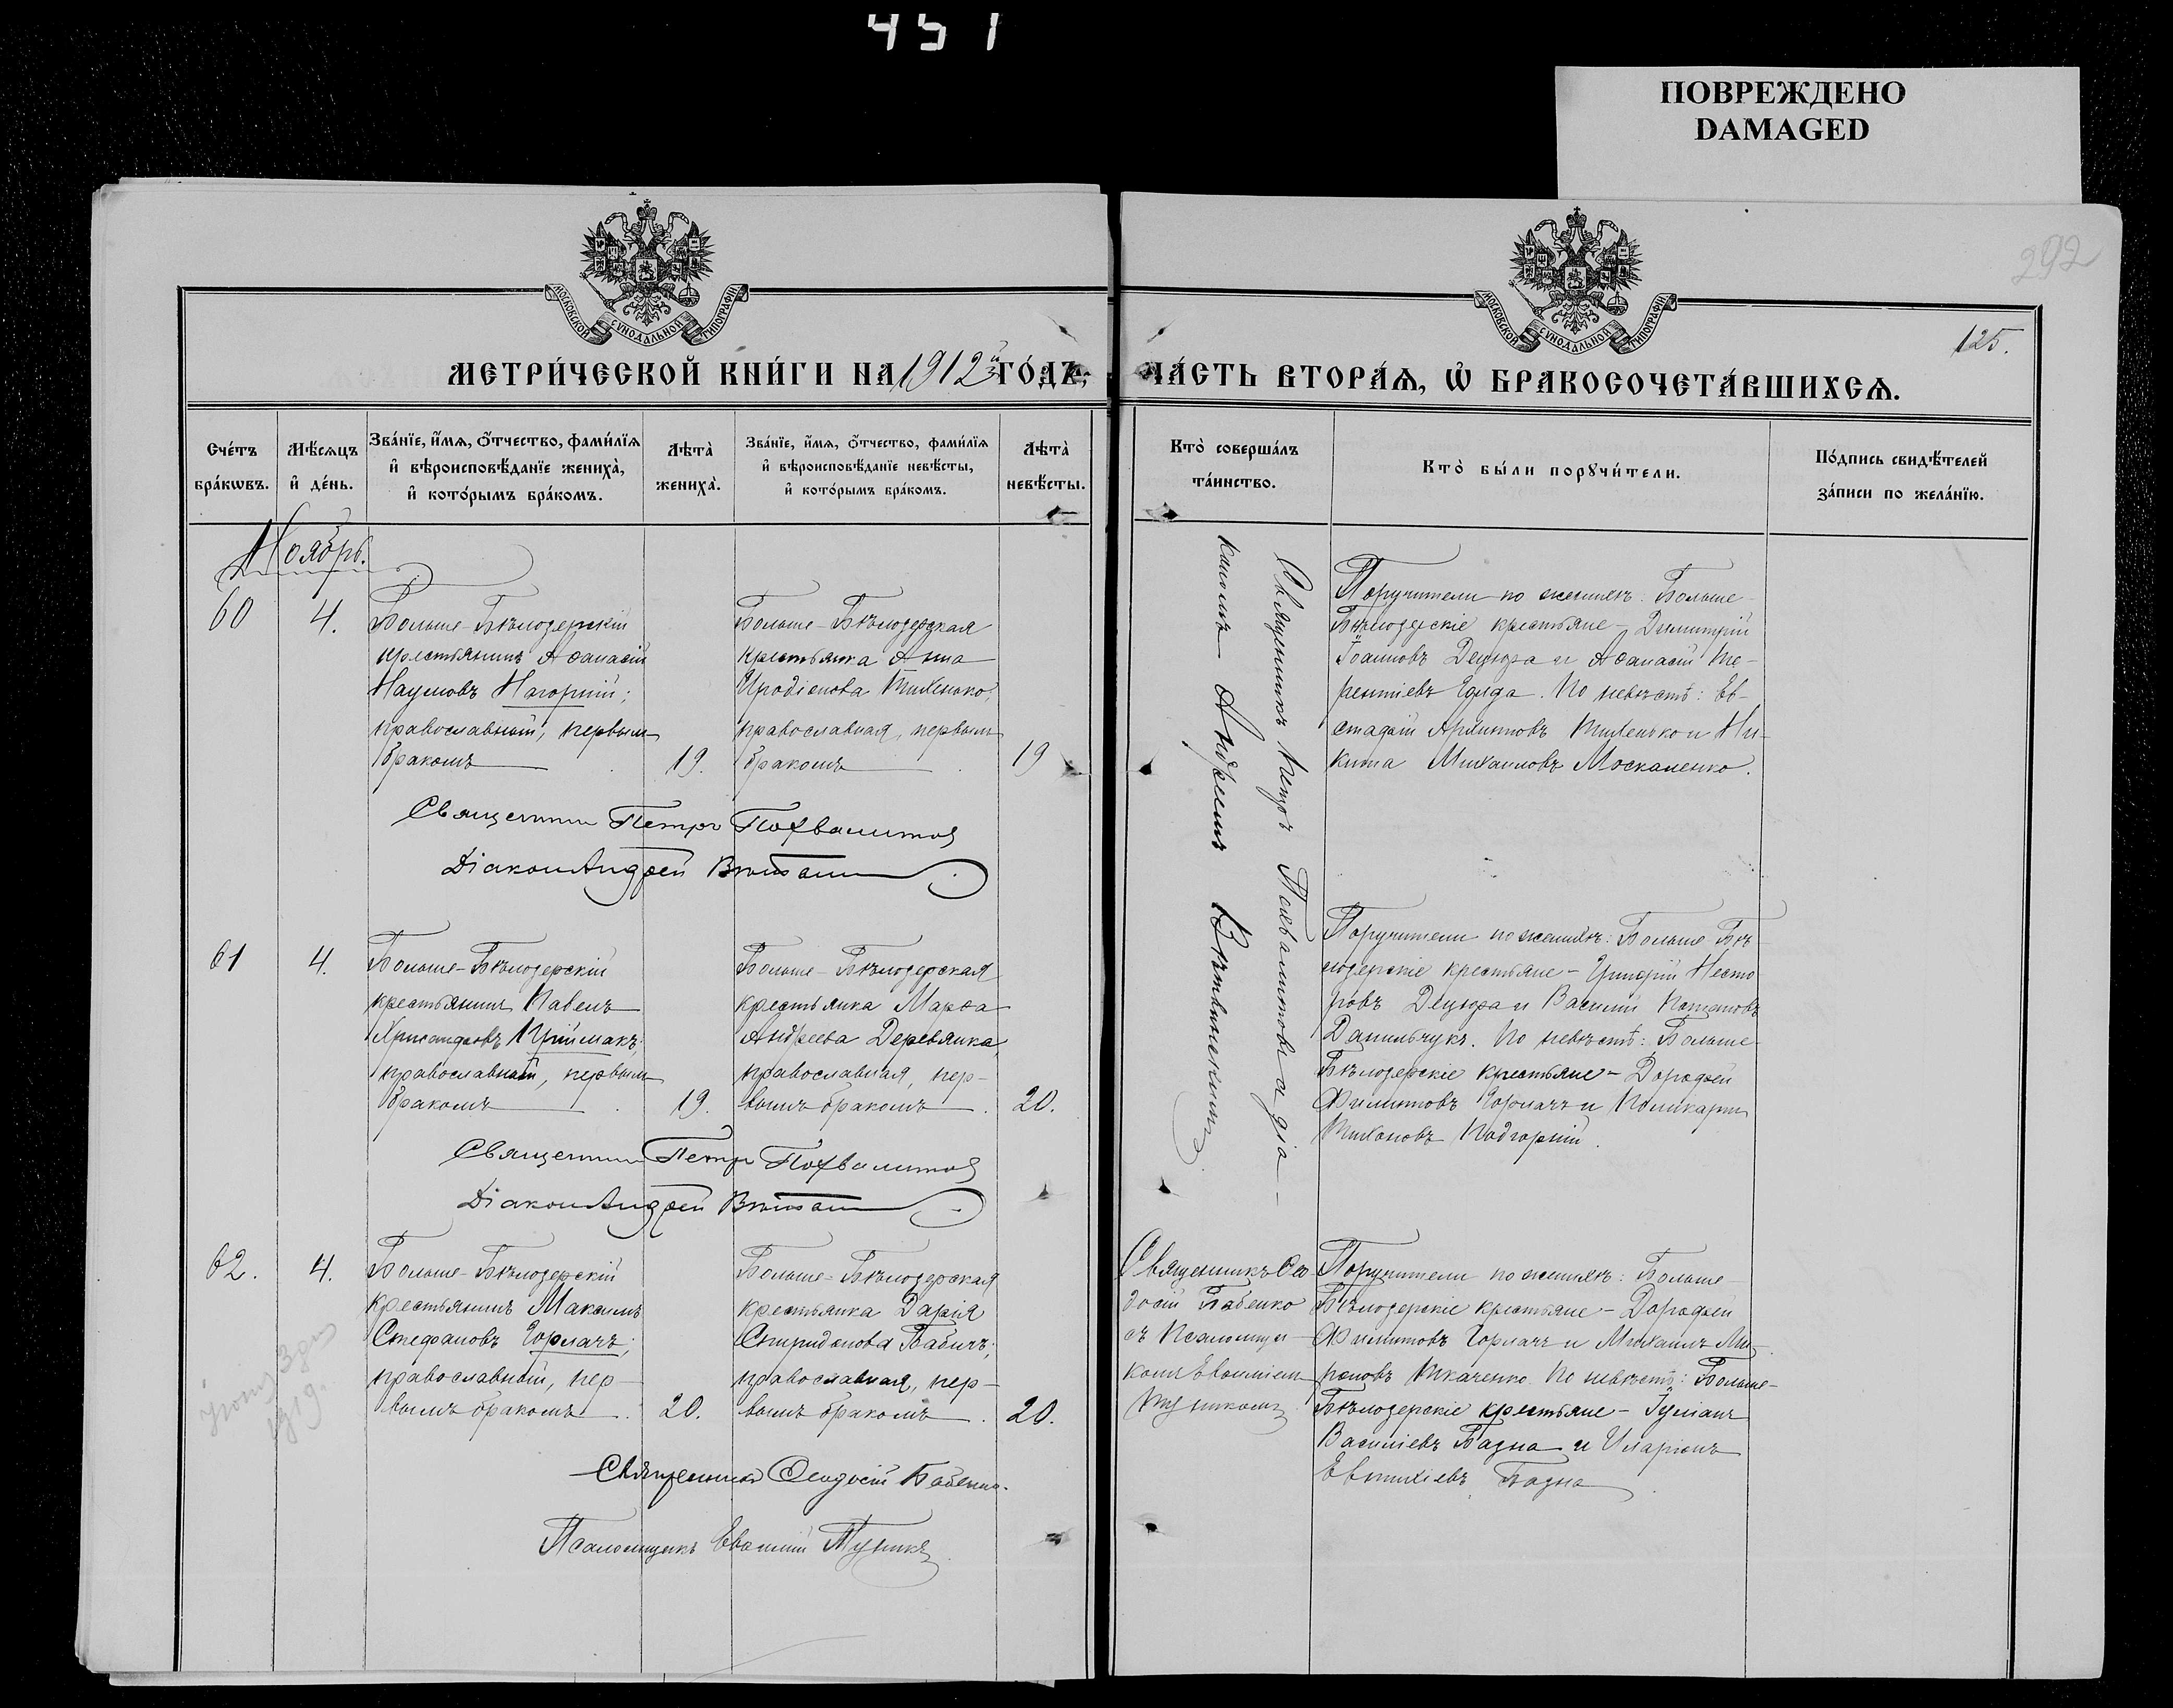 451
ПОВРЕЖДЕНО
DAMAGED
292
125.
МОСКОВСКОЙ СѴНОДАЛЬНОЙ ТИПОГРАФІИ
МОСКОВСКОЙ СѴНОДАЛЬНОЙ ТИПОГРАФІИ
МЕТРИ́ЧЕСКОЙ КНИ́ГИ НА 1912й ГО́ДЪ,
ЧА́СТЬ ВТОРА́Ѧ, Ѽ БРАКОСОЧЕТА́ВШИХСѦ.
Сче́тъ бра́кѡвъ.
Мѣ́сѧцъ и҆ де́нь.
Зва́нїе, и҆́мѧ, ѻ҆́тчество, фами́лїѧ и҆ вѣроисповѣ́данїе жениха̀, и҆ кото́рымъ бра́комъ.
Лѣта̀ жениха̀.
Зва́нїе, и҆́мѧ, ѻ҆́тчество, фами́лїѧ и҆ вѣроисповѣ́данїе невѣ́сты, и҆ кото́рымъ бра́комъ.
Лѣта̀ невѣ́сты.
Кто̀ соверша́лъ та́инство.
Кто̀ бы́ли порꙋчи́тели.
По́дпись свидѣ́телей за́писи по жела́нїю.
Ноябрь.
60
4.
Больше-Бѣлозерскій
крестьянинъ Аѳанасій
Наумовъ Нагорній;
православный, первымъ
бракомъ
19.
Больше-Бѣлозерская
крестьянка Анна
Иродіонова Тихенько,
православная, первымъ
бракомъ
19
Священникъ Петръ Похвалитовъ и діа-
кономъ Андреемъ
Поручители по женихѣ: Больше-
Бѣлозерскіе крестьяне - Димитрій
Іоанновъ Децюра и Аѳанасій Те-
рентіевъ Гайда. По невѣстѣ: Ев-
стафій Архиповъ Тихенько и Ни-
кита Михаиловъ Москаленко.
Священникъ Петръ Похвалитовъ
Діаконъ Андрей
61
4.
Больше-Бѣлозерскій
крестьянинъ Павелъ
Хрисанфовъ Приймакъ;
православный, первымъ
бракомъ
19.
Больше-Бѣлозерская
крестьянка Марѳа
Андреева Деревянка,
православная, пер-
вымъ бракомъ
20.
Поручители по женихѣ: Больше-Бѣ-
лозерскіе крестьяне - Григорій Несто-
ровъ Децюра и Василій Потаповъ
Данильчукъ. По невѣстѣ: Больше-
Бѣлозерскіе крестьяне - Дорофей
Филиповъ Горлачъ и Поликарпъ
Тихоновъ Подгорній.
Священникъ Петръ Похвалитовъ
Діаконъ Андрей
62.
4.
Больше-Бѣлозерскій
крестьянинъ Максимъ
Стефановъ Горлачъ;
православный, пер-
вымъ бракомъ.
20.
Больше-Бѣлозерская
крестьянка Дарія
Спиридонова Бабичъ;
православная, пер-
вымъ бракомъ.
20.
Священникъ Ѳео-
досій Бабенко
съ Псаломщи-
комъ Евѳиміемъ
Пуникомъ
Поручители по женихѣ: Больше-
Бѣлозерскіе крестьяне - Дорофей
Филиповъ Горлачъ и Михаилъ Ми-
роновъ Ткаченко. По невѣстѣ: Больше-
Бѣлозерскіе крестьяне - Іуліанъ
Василіевъ Бадна и Иларіонъ
Евтихіевъ Бадна
1919
Священникъ Ѳеодосій Бабенко.
Псаломщикъ Евѳимій Пуникъ